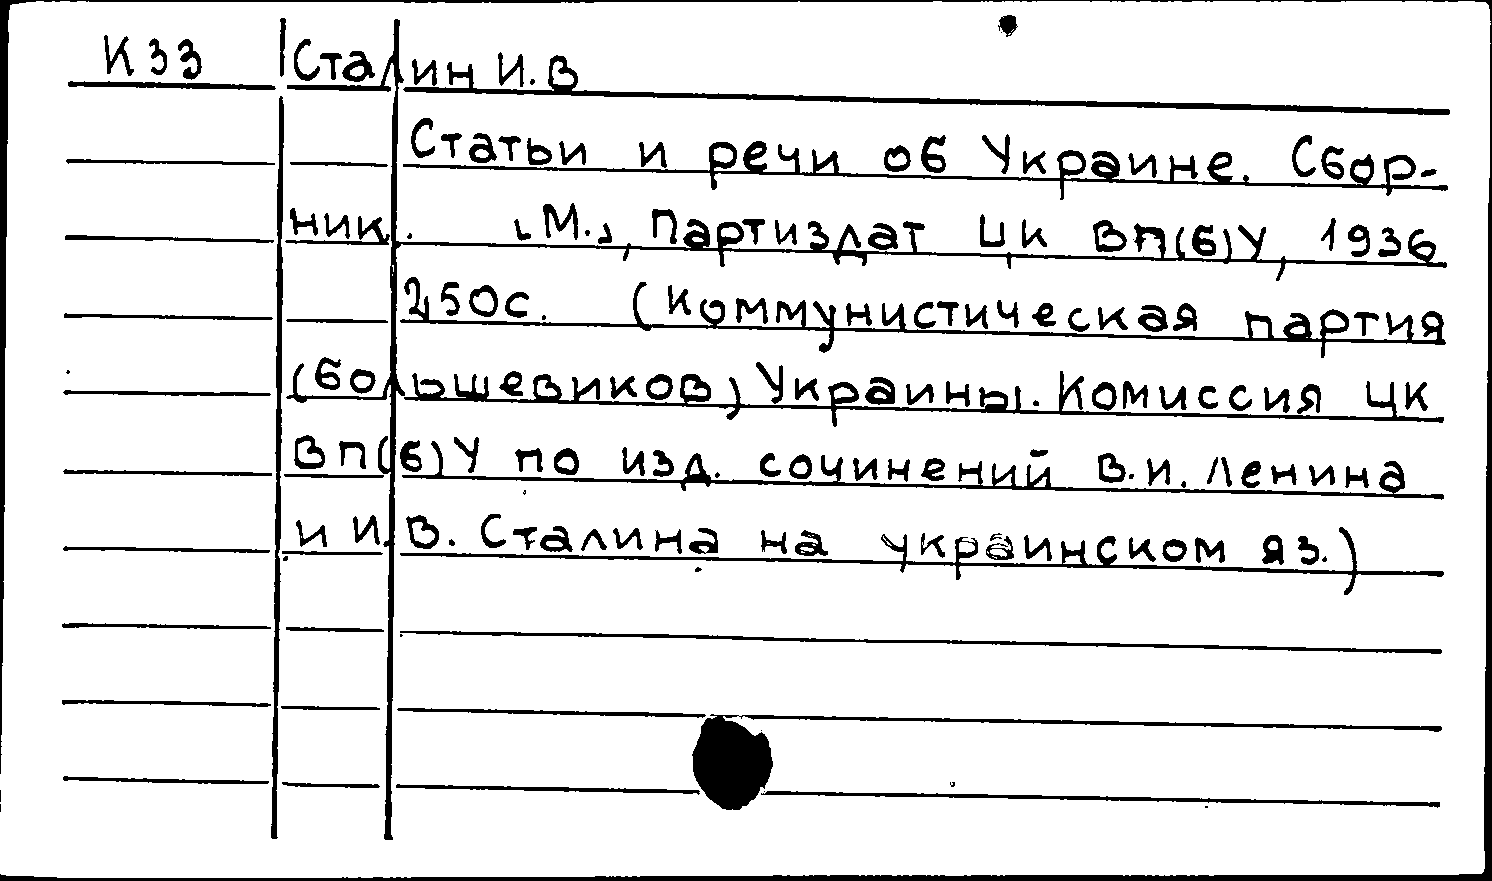 К33 Сталин И.В
Статьи и речи об Украине. Сбор-
ник. [М.], Партиздат ЦК ВП(б)У, 1936
250с. (Коммунистическая партия
(большевиков) Украины. Комиссия ЦК
ВП(б)У по изд. сочинений В.И. Ленина
и И.В. Сталина на украинском яз.)